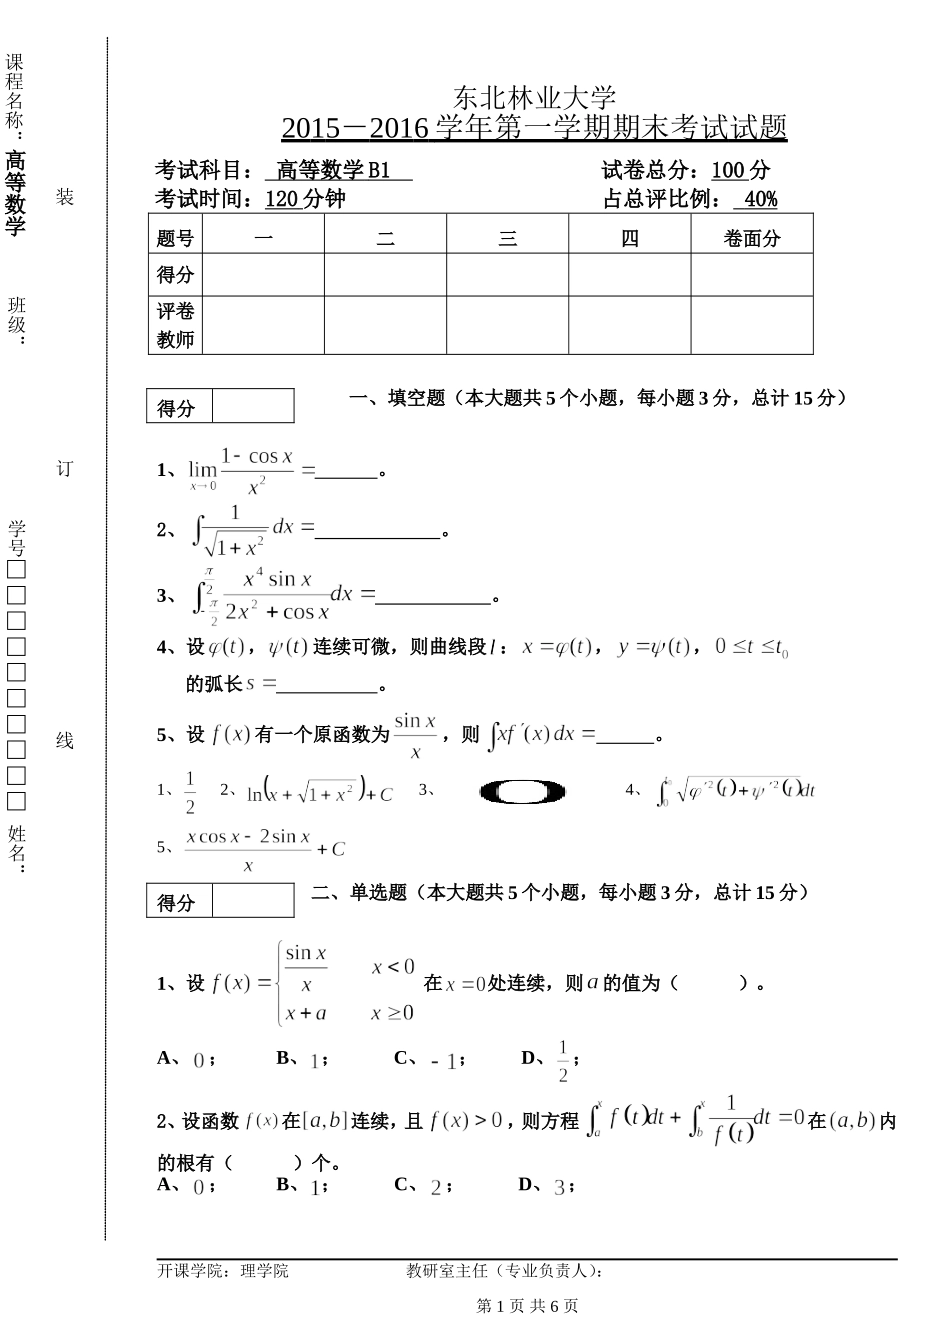 东北林业大学
2015－2016 学年第一学期期末考试试题
考试科目： 高等数学 B1 试卷总分：100 分
考试时间：120 分钟 占总评比例： 40%
题号 一 二 三 四 卷面分
得分
评卷
教师
得分 一、填空题（本大题共 5 个小题，每小题 3 分，总计 15 分）
1、 lim_{x→0} (1- cos x)/x² =______。
2、 ∫ 1/√(1+x²) dx =____________。
3、 ∫_{-π/2}^{π/2} (x⁴ sin x)/(2x² + cos x) dx =___________。
4、设 φ(t)，ψ(t) 连续可微，则曲线段 l： x = φ(t)， y = ψ(t)， 0 ≤ t ≤ t₀
的弧长 s =__________。
5、设 f(x) 有一个原函数为 sin x/x ，则 ∫xf′(x)dx =______。
1、 1/2 2、 ln(x+√(1+x²))+C 3、 0 4、 ∫_0^{t₀} √(φ′²(t)+ψ′²(t))dt
5、 (x cos x - 2 sin x)/x + C
得分 二、单选题（本大题共 5 个小题，每小题 3 分，总计 15 分）
1、设 f(x) = { sin x/x x<0 ; x+a x≥0 在 x=0 处连续，则 a 的值为（ ）。
A、0； B、1； C、-1； D、1/2；
2、设函数 f(x) 在[a,b]连续，且 f(x)>0，则方程 ∫_a^x f(t)dt + ∫_b^x 1/f(t) dt = 0 在(a,b)内
的根有（ ）个。
A、0； B、1； C、2； D、3；
开课学院：理学院 教研室主任（专业负责人）：
第 1 页 共 6 页
课程名称：高等数学
班级：
学号□□□□□□□□□□
姓名：
装
订
线